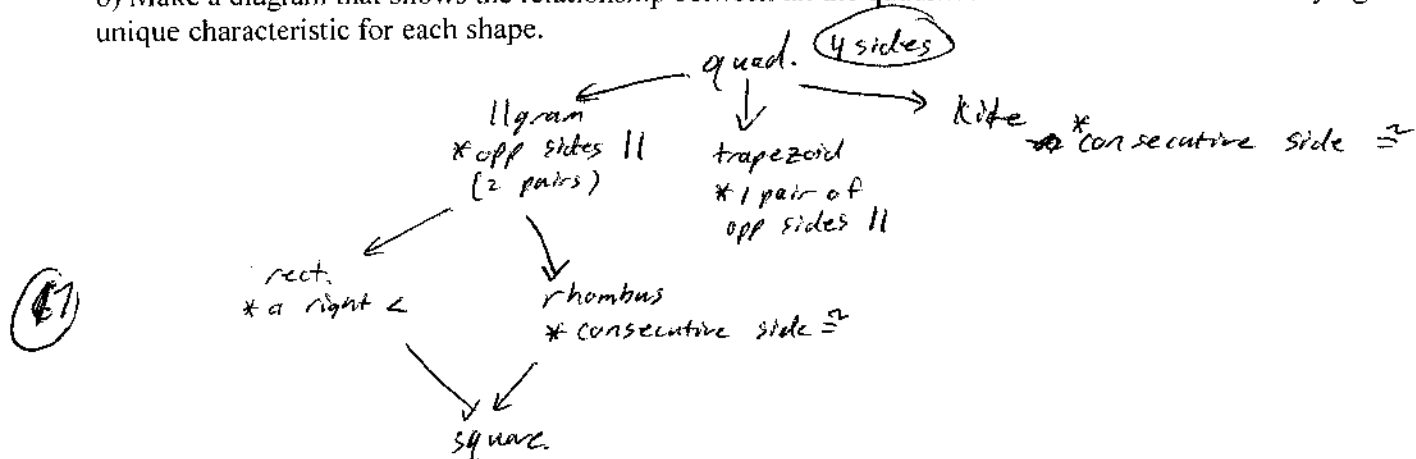 unique characteristic for each shape.
quad. 4 sides
||gram
* opp sides ||
(2 pairs)
trapezoid
* 1 pair of
opp sides ||
kite * consecutive side ≅
rect.
* a right <
rhombus
* consecutive side ≅
square.